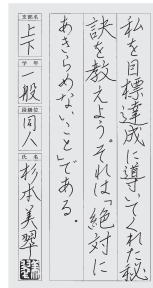 私を目標達成に導いてくれた秘
訣を教えよう。それは「絶対に
あきらめないこと」である。
支部名
上下
学年
一般
段級位
同人
氏名
杉本美翠